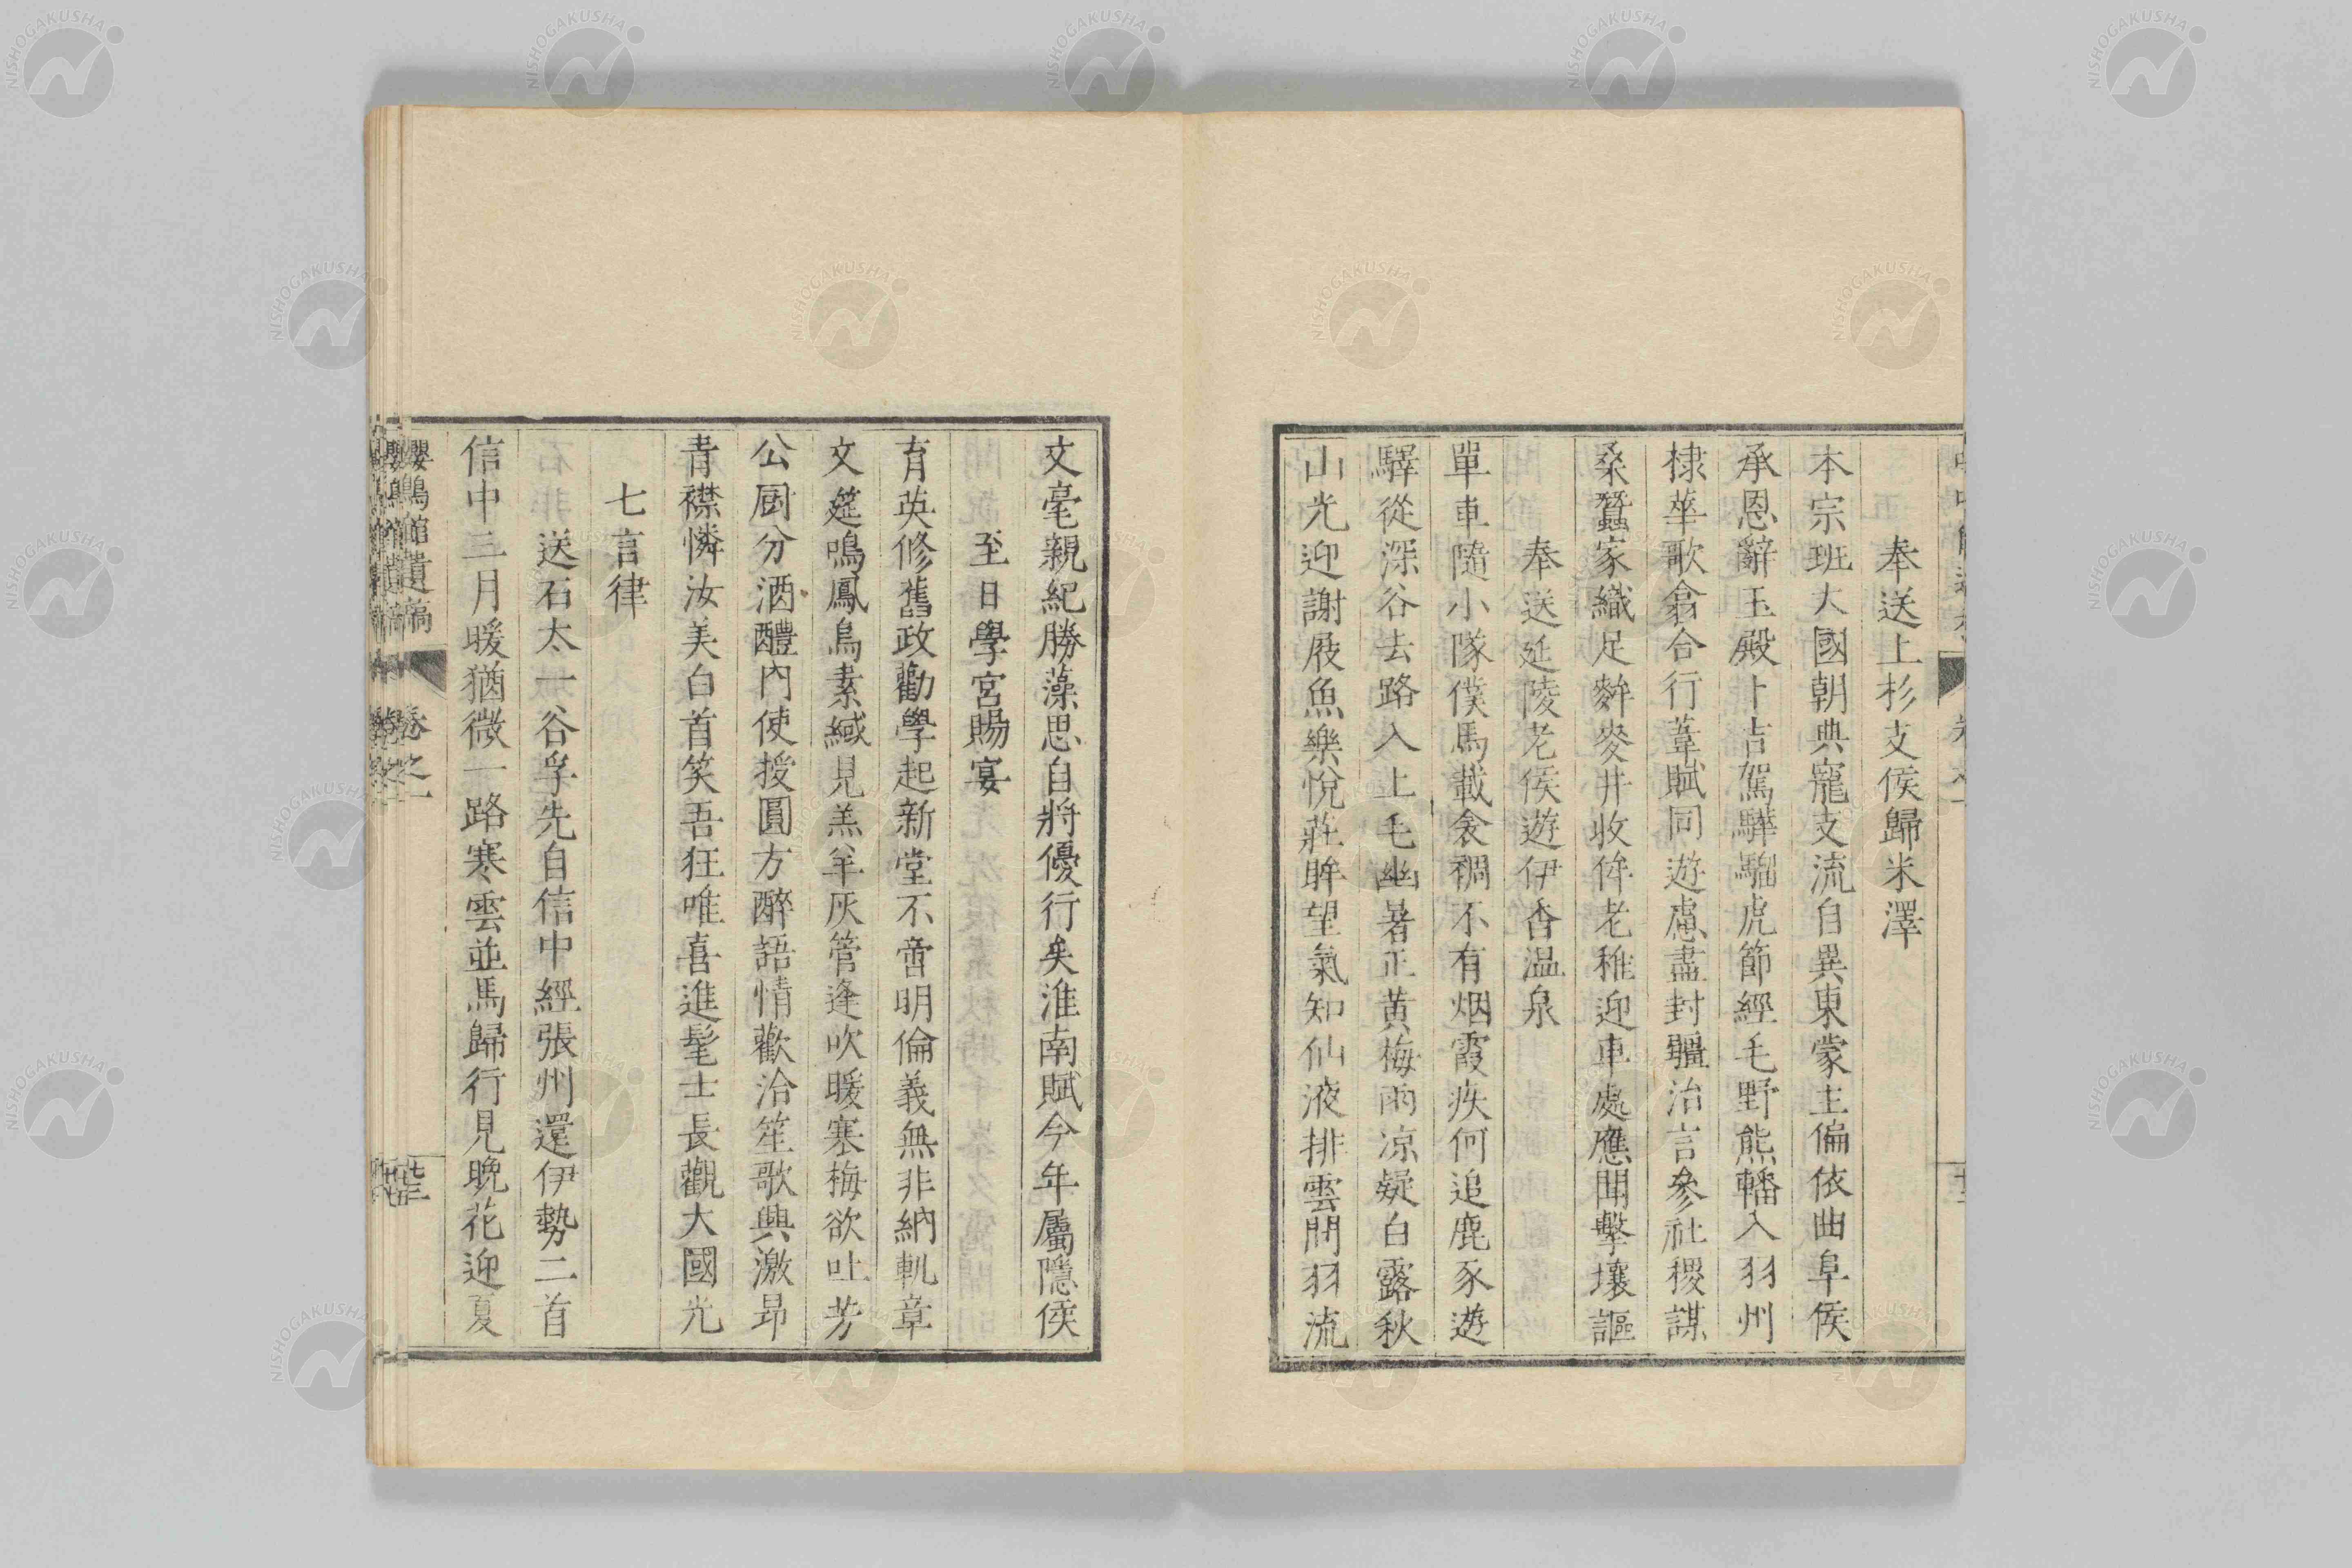 奉送上杉支侯歸米澤
本宗班大國朝典寵支流自異東蒙主偏依曲阜侯
承恩辭玉殿卜吉駕驊騮虎節經毛野熊轓入羽州
棣華歌翕合行葦賦同遊慮盡封疆治言參社稷謀
桑蠶家織足麰麥井收侔老稚迎車處應聞擊壤謳
奉送延陵老侯遊伊香温泉
單車隨小隊僕馬載衾裯不有烟霞疾何追鹿豕遊
驛從深谷去路入上毛幽暑正黄梅雨凉疑白露秋
山光迎謝屐魚樂悅莊眸望氣知仙液排雲開羽流
文毫親紀勝藻思自將優行矣淮南賦今年屬隱侯
至日學宮賜宴
育英修舊政勸學起新堂不啻明倫義無非納軌章
文筵鳴鳳鳥素緎見羔羊灰管逢吹暖寒梅欲吐芳
公厨分酒醴内使授圓方醉語情歡洽笙歌興激昂
青襟憐汝美白首笑吾狂唯喜進髦士長觀大國光
七言律
送石太一谷孚先自信中經張州還伊勢二首
信中三月暖猶微一路寒雲並馬歸行見晚花迎夏
嚶鳴館遺稿
卷之一
NISHOGAKUSHA